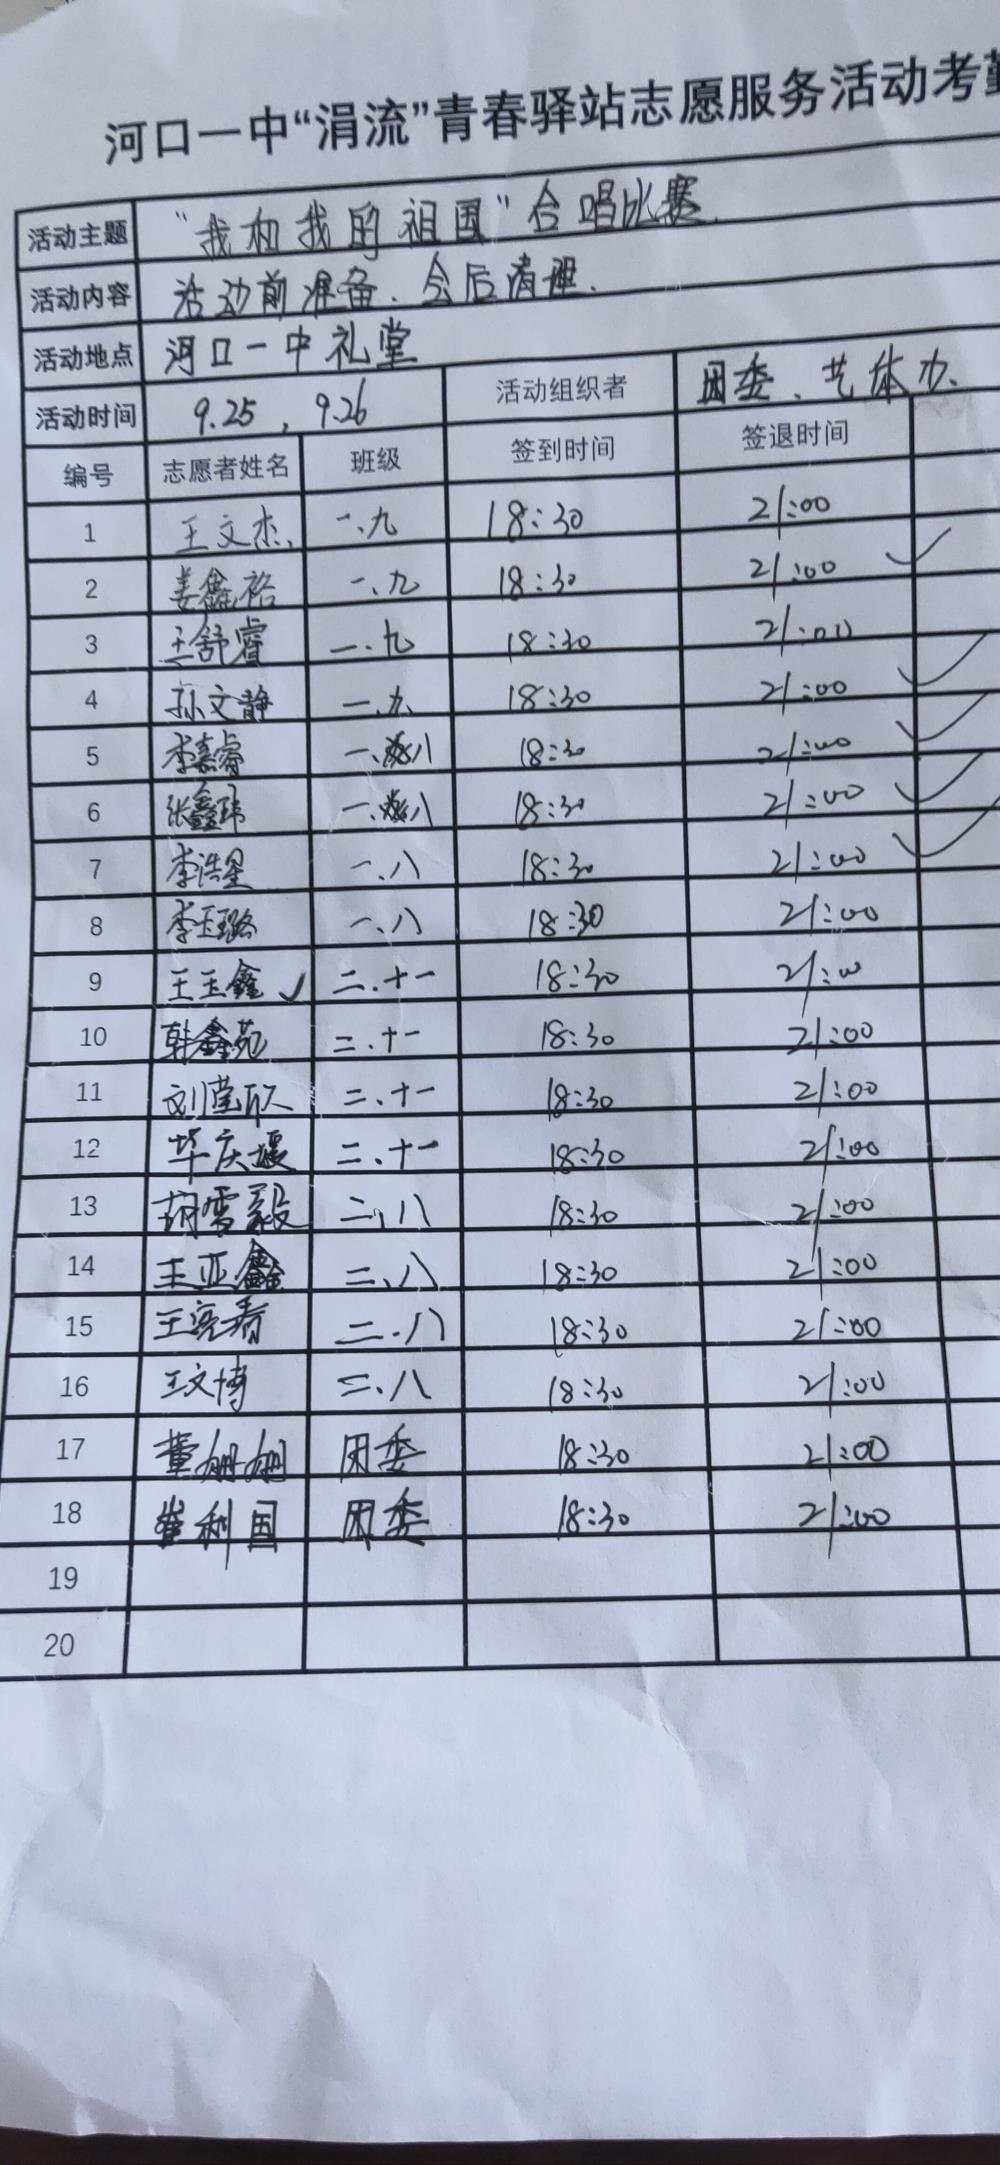 河口一中“涓流”青春驿站志愿服务活动考勤
活动主题 “我和我的祖国”合唱比赛.
活动内容 活动前准备、会后清理.
活动地点 河口一中礼堂
活动时间 9.25、9.26 活动组织者 团委、艺体办.
编号 志愿者姓名 班级 签到时间 签退时间
1 王文杰 一.九 18:30 21:00
2 姜鑫裕 一.九 18:30 21:00 ✓
3 王舒睿 一.九 18:30 21:00
4 孙文静 一.九 18:30 21:00 ✓
5 李嘉睿 一.八 18:30 21:00 ✓
6 张鑫玮 一.八 18:30 21:00 ✓
7 李浩星 一.八 18:30 21:00 ✓
8 李玉璐 一.八 18:30 21:00
9 王玉鑫 ✓ 二.十一 18:30 21:00
10 韩鑫苑 二.十一 18:30 21:00
11 刘莹欣 二.十一 18:30 21:00
12 毕庆堰 二.十一 18:30 21:00
13 胡雪毅 二.八 18:30 21:00
14 王亚鑫 二.八 18:30 21:00
15 王亮春 二.八 18:30 21:00
16 王文博 二.八 18:30 21:00
17 董姗姗 团委 18:30 21:00
18 崔利国 团委 18:30 21:00
19
20